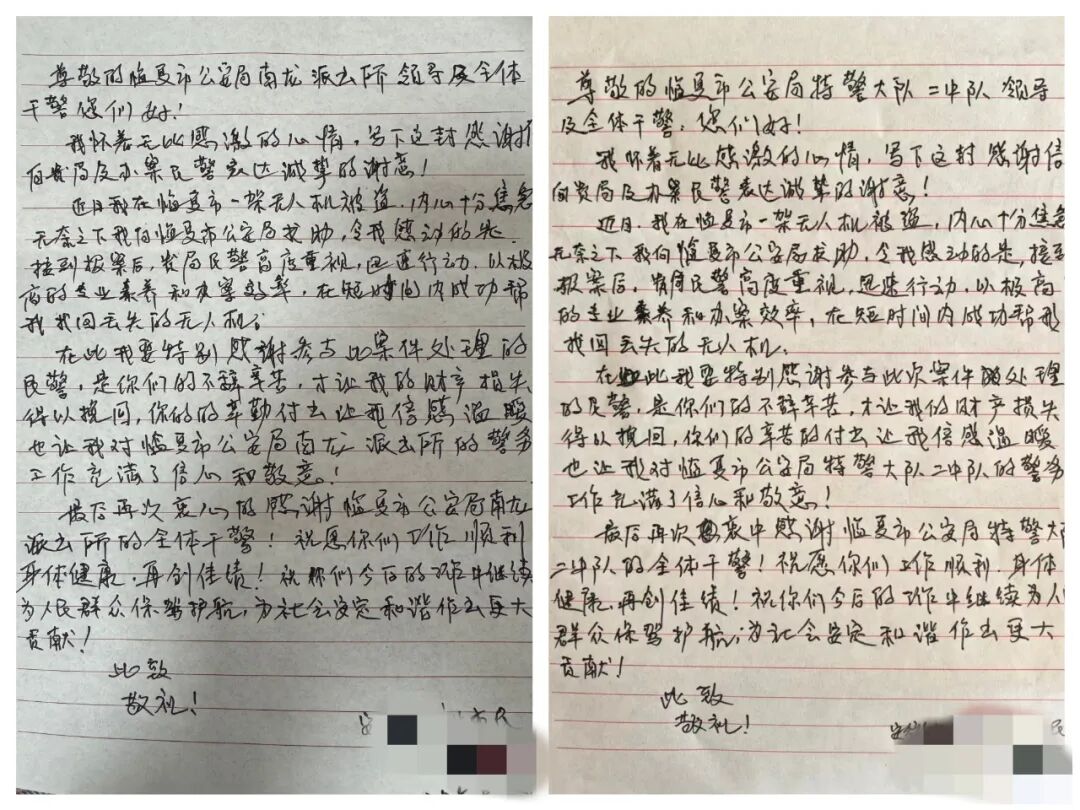 尊敬的临夏市公安局南龙派出所领导及全体
干警您们好!
我怀着无比感激的心情,写下这封感谢信
向贵局及办案民警表达诚挚的谢意!
近日我在临夏市一架无人机被盗,内心十分焦急
无奈之下我向临夏市公安局求助,令我感动的是.
接到报案后,贵局民警高度重视,迅速行动,以极
高的专业素养和办案效率,在短时间内成功帮
我找回丢失的无人机。
在此我要特别感谢参与此案件处理的
民警,是你们的不辞辛苦,才让我的财产损失
得以挽回,你的的辛勤付出让我倍感温暖
也让我对临夏市公安局南龙派出所的警务
工作充满了信心和敬意。!
最后再次衷心的感谢临夏市公安局南龙
派出所的全体干警!祝愿你们工作顺利
身体健康,再创佳绩!祝你们今后的工作中继续
为人民群众保驾护航,为社会安定和谐作出更大
贡献!
此致
敬礼!
尊敬的临夏市公安局特警大队二中队领导
及全体干警:您们好!
我怀着无比感激的心情,写下这封感谢信
向贵局及办案民警表达诚挚的谢意!
近日,我在临夏市一架无人机被盗,内心十分焦急
无奈之下我向临夏市公安局求助,令我感动的是,接到
报案后,贵局民警高度重视,迅速行动,以极高
的专业素养和办案效率,在短时间内成功帮我
找回丢失的无人机.
在此我要特别感谢参与此次案件处理
的民警,是你们的不辞辛苦,才让我的财产损失
得以挽回,你们的辛苦的付出让我倍感温暖
也让我对临夏市公安局特警大队二中队的警务
工作充满了信心和敬意!
最后再次衷中感谢临夏市公安局特警大
二中队的全体干警!祝愿你们工作顺利.身体
健康,再创佳绩!祝你们今后的工作中继续为人
群众保驾护航,为社会安定和谐作出更大
贡献!
此致
敬礼!